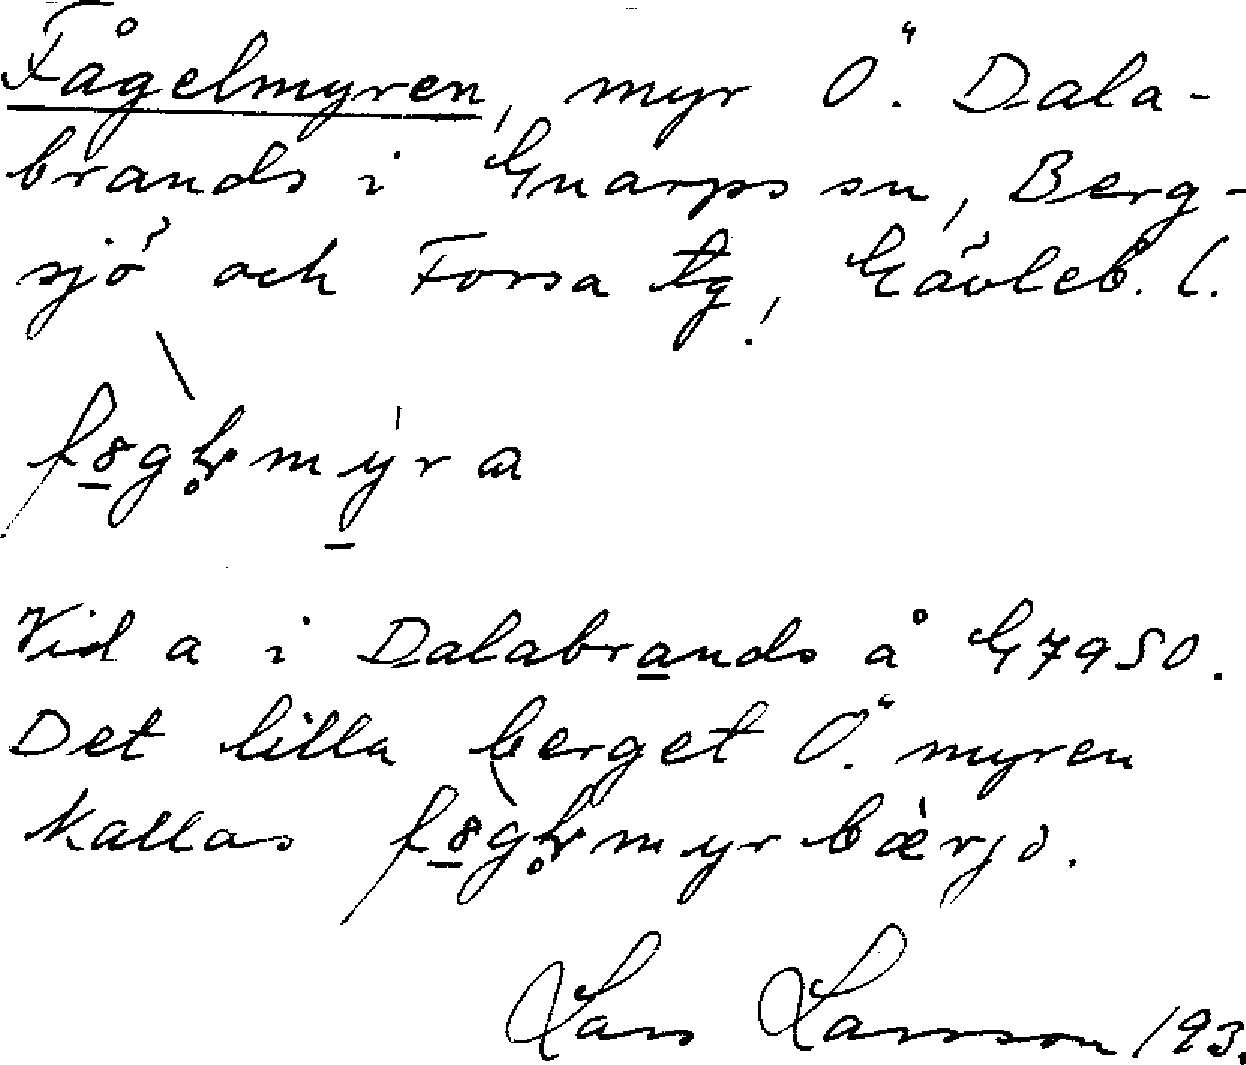 Fågelmyren, myr Ö. Dala-
brands i Gnarps sn, Berg-
sjö och Forsa tg, Gävleb. l.
Vid a i Dalabrands å G7950.
Det lilla berget Ö. myren
kallas
Lars Larsson 193.